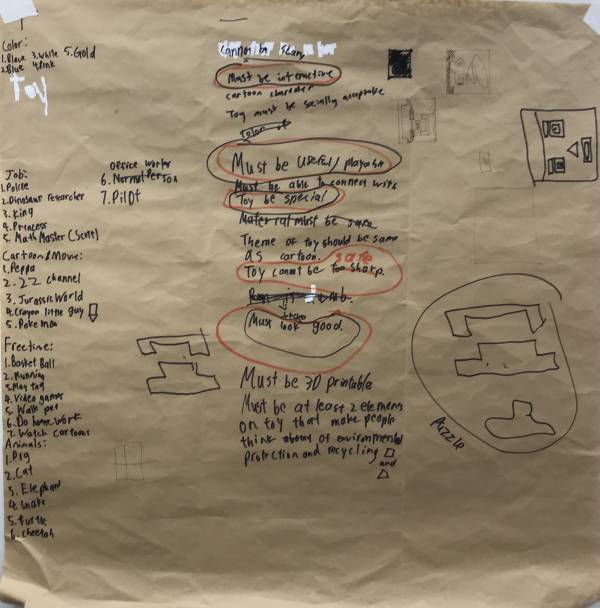 Color:
1. Black 3. White 5. Gold
2. Blue 4. Pink
Toy
Job:
1. Police
2. Dinosaur researcher
3. King
4. Princess
5. Math Master (Scott)
Office worker
6. Normal Person
7. Pilot
Cartoon & Movie:
1. Peppa
2. 22 channel
3. Jurassic World
4. Crayon little guy
5. Pokemon
Freetime:
1. Basket Ball
2. Running
3. Play tag
4. Video games
5. Walk pet
6. Do home work
7. Watch cartoons
Animals:
1. Pig
2. Cat
3. Elephant
4. Snake
5. turtle
6. cheetah
Cannot be Scary
Must be interactive
cartoon character
Toy must be socially acceptable
Color of
Must be useful/playable
Must be able to connect with
Toy be special
Material must be safe
Theme of toy should be same
as cartoon. safe
Toy cannot be too sharp.
Must look good.
Must be 3D printable
Must be at least 2 elements
on toy that make people
think about of environmental
protection and recycling
and
Puzzle